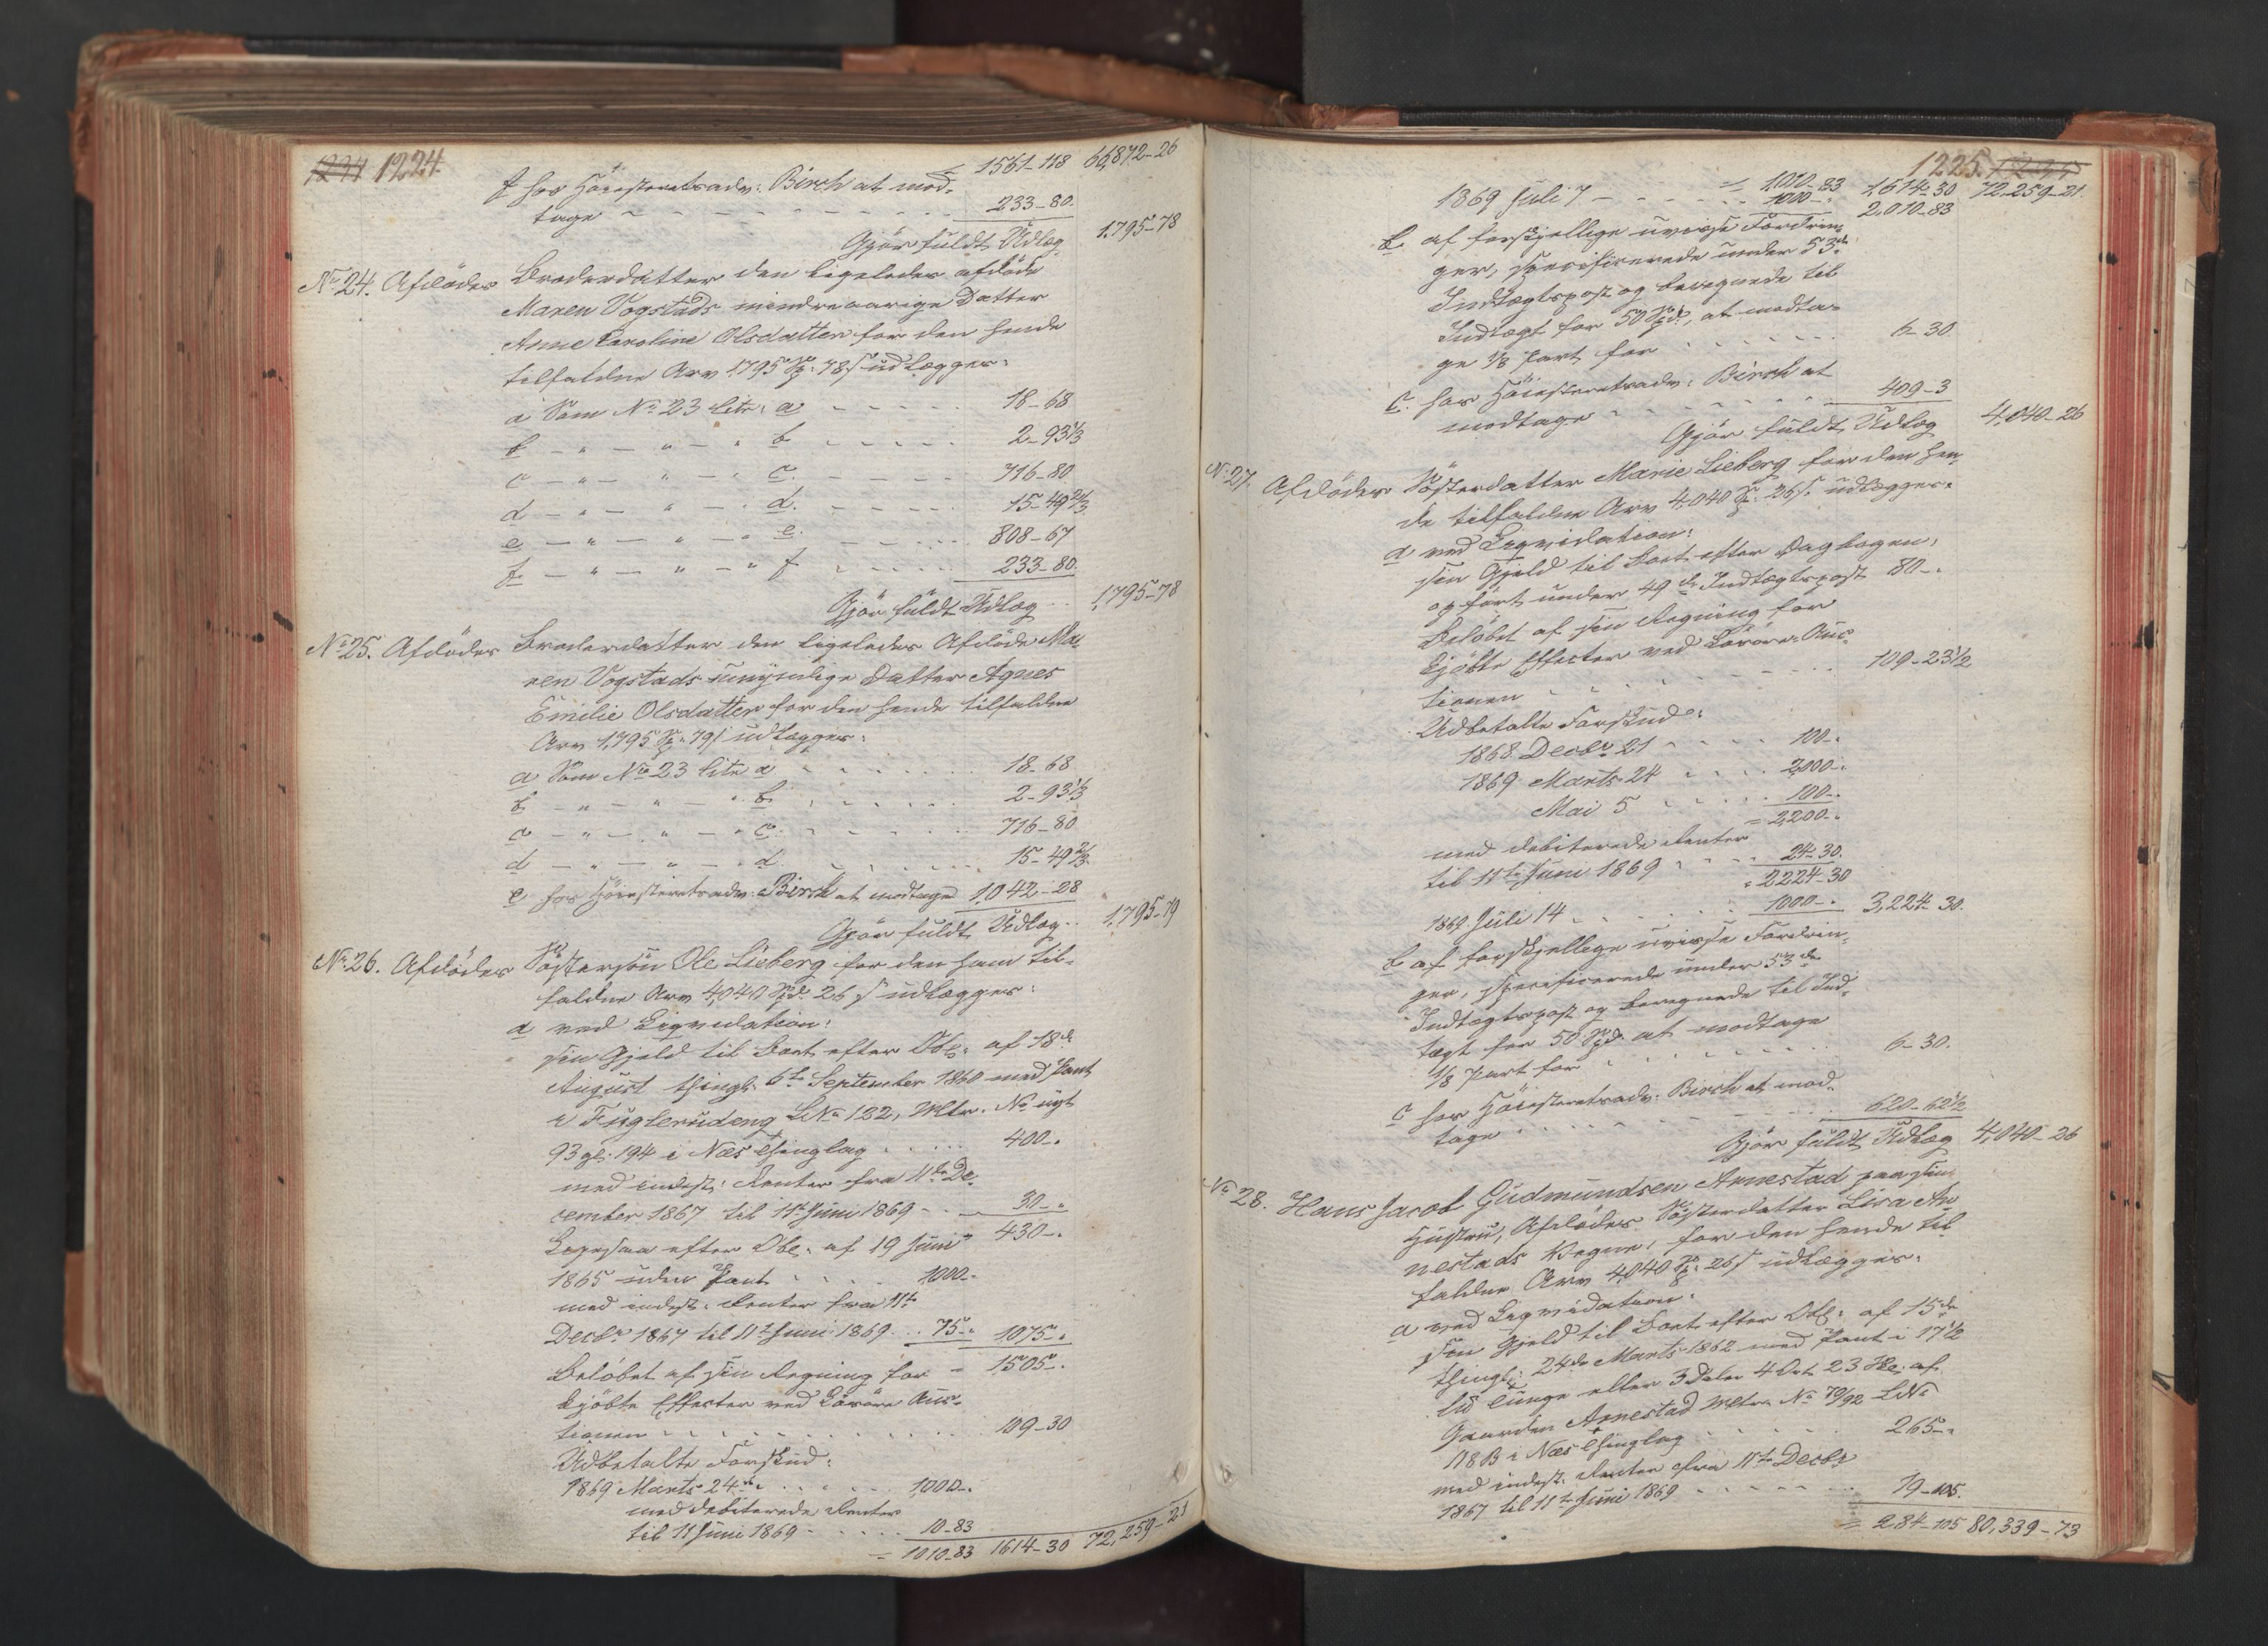 1224 1224.
= 1561-118 66,872-26
f hos Høiesteretsadv: Birch at mod-
tage - - - - - - - - - 233-80.
Gjør fuldt Udlæg 1,795-78
No 24. Afdødes Broderdatter den ligeledes afdøde
Maren Vogstads mindreaarige Datter
Anne Caroline Olsdatter for den hende
tilfaldne Arv 1,795 Spd: 78 s udlægges:
a Som No 23 litr: a - - - - - 18-68
b - " - " - " b - - - - - 2-93 1/3
c - " - " - " c. - - - - - 716-80
d - " - " - " d. - - - - - 15-49 2/3
e - " - " - " e. - - - - - 808-67
f - " - " - " f - - - - - 233-80.
Gjør fuldt Udlæg .. 1,795-78
No 25. Afdødes Broderdatter den ligeledes Afdøde Ma-
ren Vogstads umyndige Datter Agnes
Emilie Olsdatter for den hende tilfaldne
Arv 1,795 Spd: 79 s udlægges:
a Som No 23 litr a - - - - - 18-68
b - " - " - " b. - - - - - 2-93 1/3
c - " - " - " c. - - - - - 716-80
d - " - " - " d. - - - - - 15-49 2/3
e hos Høiesteretsadv: Birch at modtage 1,042-28
Gjør fuldt Udlæg .. 1,795-79
No 26. Afdødes Søstersøn Ole Lieberg for den ham til-
faldne Arv 4,040 Spd. 26 s udlægges:
a ved Liqvidation:
sin Gjeld til Boet efter Obl: af 18de
August thingl. 6te September 1860 med Pant
i Fuglerudeng LNo 122, Mtr. No nyt
93 gl. 194 i Næs Thinglag . . . . . 400-.
med indest: Renter fra 11te De-
cember 1867 til 11te Juni 1869 - - - 30-.
430-.
Ligesaa efter Obl: af 19 Juni
1865 uden Pant . . . . 1000-
med indest: Renter fra 11te
Decbr 1867 til 11te Juni 1869 . . 75-. 1075-.
= 1505-.
Beløbet af sin Regning for
kjøbte Effecter ved Løsøre Auc-
tionen . . . . . . . . . . 109-30
Udbetalte Forskud:
1869 Marts 24de . . . . . 1000-.
med debiterede Renter
til 11 Juni 1869 - . . . . 10-83
= 1010-83 1614-30 72,259-21
1225. 1235
= 1,010-83 1,614-30 72,259-21.
1869 Juli 7 - - - - - - 1000-. 2,010-83
b. af forskjellige uvisse Fordrin-
ger, specificerede under 53de
Indtægtspost og beregnede til
Indtægt for 50 Spd, at modta-
ge 1/8 Part for . . . . . . . 6-30
c. hos Høiesteretsadv: Birch at
modtage - - - - - - - - 409-3
Gjør fuldt Udlæg 4,040-26
No 27. Afdødes Søsterdatter Marie Lieberg for den hen-
de tilfaldne Arv 4,040 Spd: 26 s. udlægges:
a ved Liqvidation:
sin Gjeld til Boet efter Dagbogen,
opført under 49de Indtægtspost 80-.
Beløbet af sin Regning for
kjøbte Effecter ved Løsøre-Auc-
tionen - - - - - - - 109-23 1/2
Udbetalte Forskud:
1868 Decbr 21 . . . . 100-.
1869 Marts 24 . . . . 2,000-.
Mai 5 . . . . . 100-.
= 2,200-.
med debiterede Renter
til 11te Juni 1869 . . . . 24-30.
= 2224-30
1869 Juli 14 . . . . . . . 1000-. 3,224-30.
b af forskjellige uvisse Fordrin-
ger, specificerede under 53de
Indtægtspost og beregnede til Ind-
tægt for 50 Spd. at modtage
1/8 Part for . . . . . . . . 6-30.
c hos Høiesteretsadv: Birch at mod-
tage . . . . . . . . . . 620-62 1/2
Gjør fuldt Udlæg 4,040-26
No 28. Hans Jacob Gudmundsen Annestad paa sin
Hustru, Afdødes Søsterdatter Lisa An-
nestads Vegne, for den hende til-
faldne Arv 4,040 Spd: 26 s udlægges:
a ved Liqvidation:
sin Gjeld til Boet efter Obl: af 15de
thingl: 24de Marts 1862 med Pant i 17 1/2
Lod Tunge eller 3 Daler 4 Ort 23 Sk: af
Gaarden Annestad Mtr. No 79/92 LNo
118 B i Næs Thinglag . . . . . . 265-.
med indest. Renter fra 11te Decbr
1867 til 11te Juni 1869 . . . . . . 19-105.
= 284-105 80,339-73